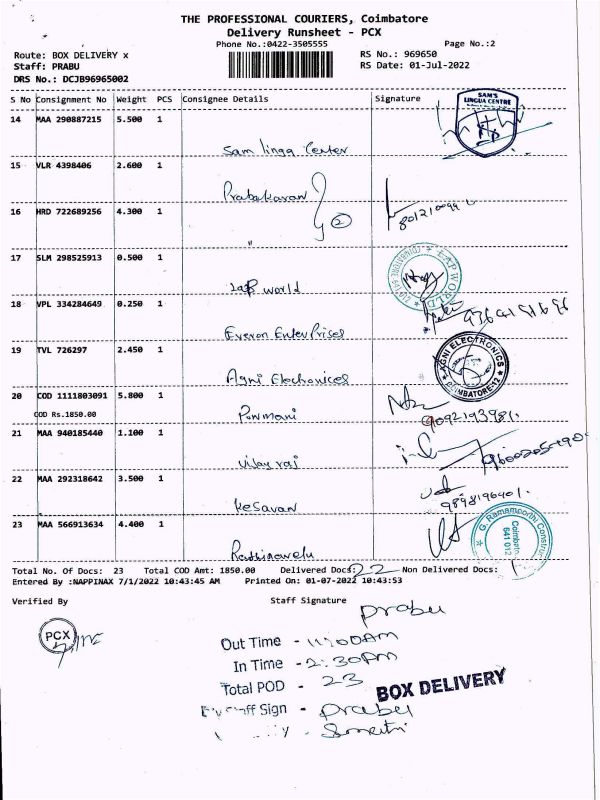 THE PROFESSIONAL COURIERS, Coimbatore
Delivery Runsheet - PCX
Phone No.:0422-3505555
Page No.:2
Route: BOX DELIVERY x
RS No.: 969650
Staff: PRABU
RS Date: 01-Jul-2022
DRS No.: DCJB96965002
S No Consignment No Weight PCS Consignee Details Signature
14 MAA 290887215 5.500 1
SAM'S LINGUA CENTRE
Sam linga Center
15 VLR 4398406 2.600 1
Prabakaran
16 HRD 722689256 4.300 1
2
17 SLM 298525913 0.500 1
World
18 VPL 334284649 0.250 1
Everon Enterprises
19 TVL 726297 2.450 1
AGNI ELECTRONICS COIMBATORE-12
Agni Electronices
20 COD 1111803091 5.800 1
COD Rs.1850.00
Ponmani
21 MAA 940185440 1.100 1
Vijay raj
22 MAA 292318642 3.500 1
Kesavan
23 MAA 566913634 4.400 1
G. Ramamoorthi Constru
641 012
Total No. Of Docs: 23 Total COD Amt: 1850.00 Delivered Docs: 22 Non Delivered Docs: 1
Entered By :NAPPINAX 7/1/2022 10:43:45 AM Printed On: 01-07-2022 10:43:53
Verified By Staff Signature
prabu
PCX
Out Time - 11:00AM
In Time - 2:30PM
Total POD - 23
BOX DELIVERY
Sign - prabu